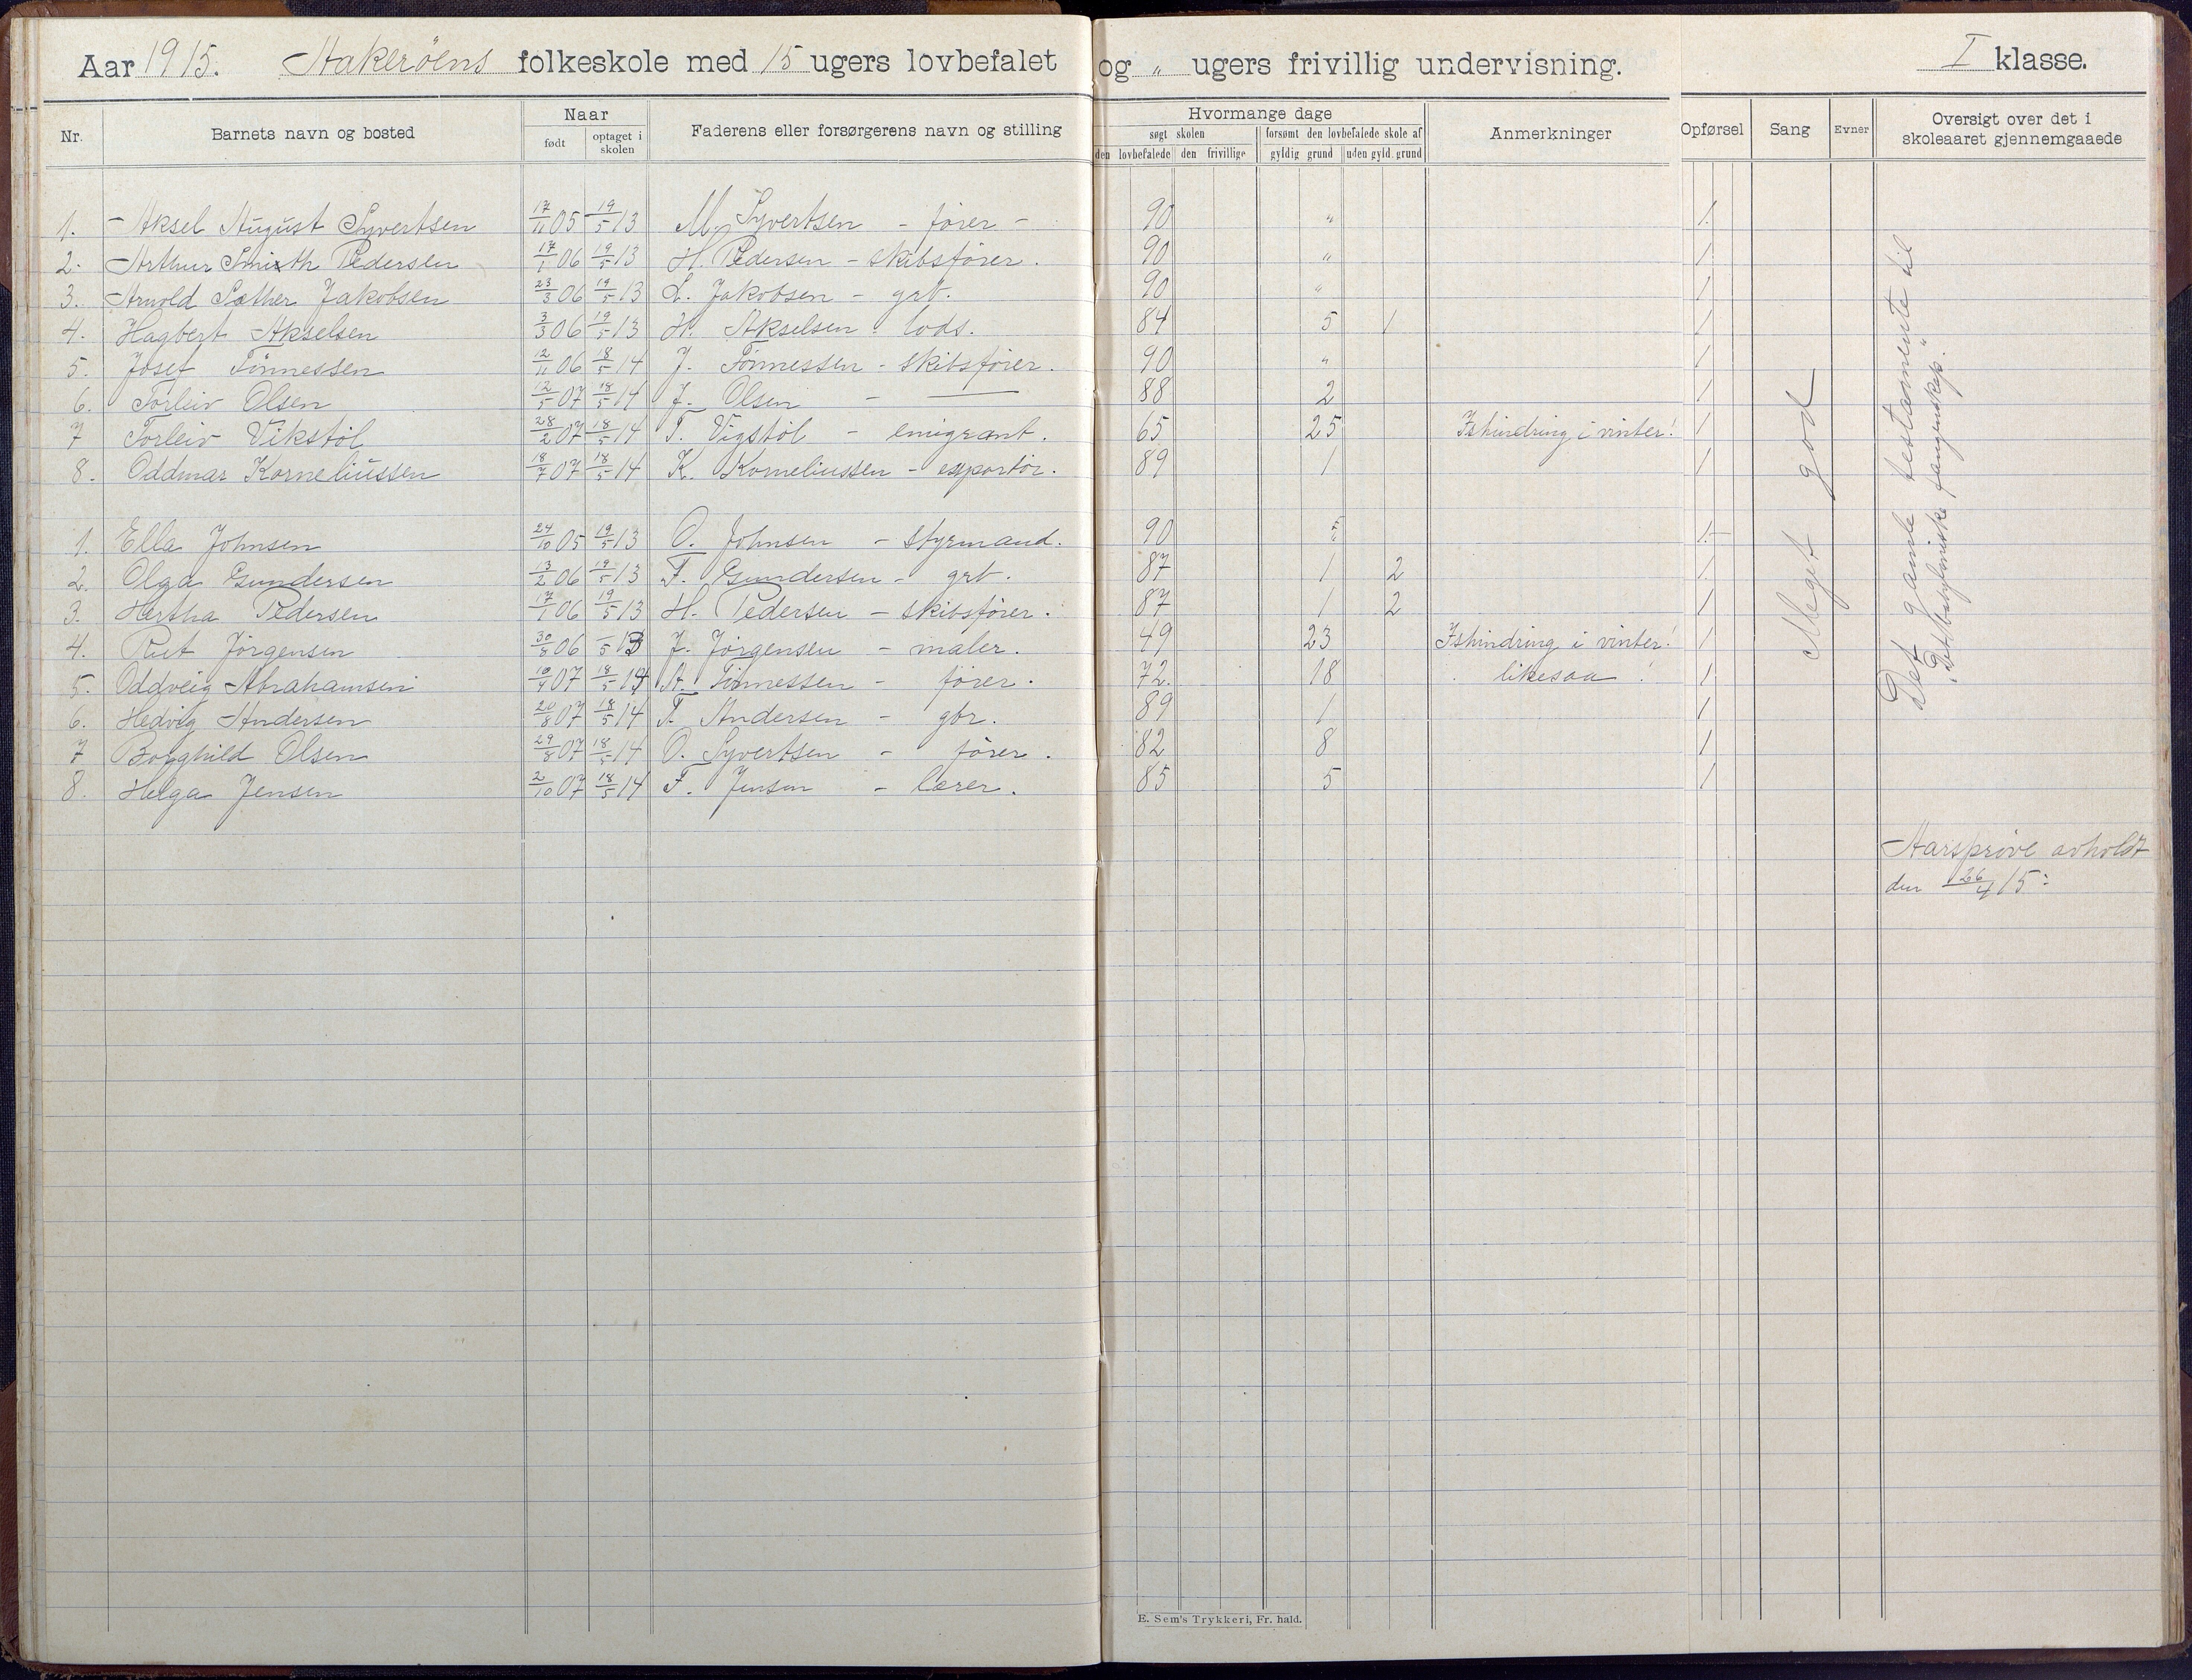 Aar 1915. Hakerøens folkeskole med 15 ugers lovbefalet og " ugers frivillig undervisning. I klasse.
Nr. Barnets navn og bosted Naar født optaget i skolen Faderens eller forsørgerens navn og stilling Hvormange dage søgt skolen den lovbefalede den frivillige forsømt den lovbefalede skole af gyldig grund uden gyld. grund Anmerkninger Opførsel Sang Evner Oversigt over det i skoleaaret gjennemgaaede
1. Aksel August Syvertsen 17/11 05 19/5 13 M. Syvertsen - fører - 90 " 1.
2. Arthur Smith Pedersen 17/1 06 19/5 13 H. Pedersen - skibsfører. 90 " 1
3. Arnold Sæther Jakobsen 23/3 06 19/5 13 L. Jakobsen - grb. 90 " 1
4. Hagbert Akselsen 3/3 06 19/5 13 H. Akselsen lods. 84 5 1 1
5. Josef Tønnessen 12/11 06 18/5 14 J. Tønnessen - skibsfører. 90 " 1
6. Torleiv Olsen 12/5 07 18/5 14 J. Olsen - — 88 2 1
7 Torleiv Vikstøl 28/2 07 18/5 14 T. Vigstøl - emigrant. 65 25 Ishindring i vinter! 1
8. Oddmar Korneliussen 18/7 07 18/5 14 K. Korneliussen - exportør. 89 1 1
1. Ella Johnsen 24/10 05 19/5 13 O. Johnsen - styrmand. 90 " 1.
2. Olga Gundersen 13/2 06 19/5 13 F. Gundersen - grb. 87 1 2 1.
3. Hertha Pedersen 17/1 06 19/5 13 H. Pedersen - skibsfører. 87 1 2 1
4. Rut Jörgensen 30/8 06 -/5 13 J. Jörgensen - maler. 49 23 Ishindring i vinter! 1
5. Oddveig Abrahamsen 10/4 07 18/5 14 A. Tønnessen - fører. 72. 18 likesaa ! 1
6. Hedvig Andersen 20/8 07 18/5 14 T. Andersen - gbr. 89 1 1
7 Borghild Olsen 29/8 07 18/5 14 O. Syvertsen - fører. 82 8 1
8. Helga Jensen 2/10 07 18/5 14 F. Jensen - lærer. 85 5 1
Meget god
Det gamle testamente til
"Det babyloniske fangenskap".
Aarsprøve avholdt
den 26/4 15:
E. Sem's Trykkeri, Fr. hald.